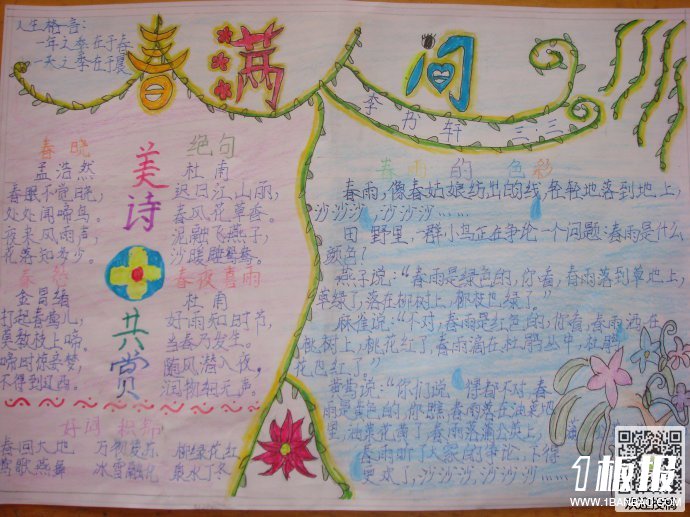 人生格言:
一年之季在于春
一天之季在于晨
春满 间
李乃轩 三.三
美诗共赏
春晓
孟浩然
春眠不觉晓,
处处闻啼鸟。
夜来风雨声,
花落知多少。
春怨
金昌绪
打起黄莺儿,
莫教枝上啼。
啼时惊妾梦,
不得到辽西。
绝句
杜甫
迟日江山丽,
春风花草香。
泥融飞燕子,
沙暖睡鸳鸯。
春夜喜雨
杜甫
好雨知时节,
当春乃发生。
随风潜入夜,
润物细无声。
好词积累
春回大地 万物复苏 柳绿花红
莺歌燕舞 冰雪融化 泉水丁冬
春雨的色彩
春雨,像春姑娘纺出的线,轻轻地落到地上,
沙沙沙,沙沙沙……
田野里,一群小鸟正在争论一个问题:春雨是什么
颜色?
燕子说:“春雨是绿色的,你看,春雨落到草地上,
草绿了,落在柳树上,柳枝也绿了。”
麻雀说:“不对,春雨是红色的,你看,春雨洒在
桃树上,桃花红了,春雨滴在杜鹃丛中,杜鹃
花也红了。”
黄莺说:“你们说 得都不对,春
雨是黄色的,你瞧,春雨落在油菜地
里,油菜花黄了,春雨落蒲公英上,
春雨听了大家的争论,下得
更欢了,沙沙沙,沙沙沙……
1板报
WWW.1BANBAO.COM
欢迎投稿